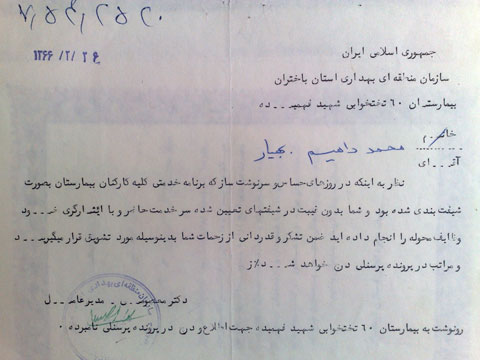 ۱۳۶۶/۲/۲۶
جمهوری اسلامی ایران
سازمان منطقه ای بهداری استان باختران
بیمارستان ۶۰ تختخوابی شهید فهمیده
خانم
محمد بهیار
آقای
نظر به اینکه در روزهای حساس و سرنوشت ساز که برنامه خدمتی کلیه کارکنان بیمارستان بصورت
شیفت بندی شده بود و شما بدون غیبت در شیفتهای تعیین شده سر خدمت حاضر و با ایثارگری خود
وظایف محوله را انجام داده اید ضمن تشکر و قدردانی از زحمات شما بدینوسیله مورد تشویق قرار میگیرید
و مراتب در پرونده پرسنلی درج خواهد شد
دکتر مدیر عامل
رونوشت به بیمارستان ۶۰ تختخوابی شهید فهمیده جهت اطلاع و درج در پرونده پرسنلی نامبرده .